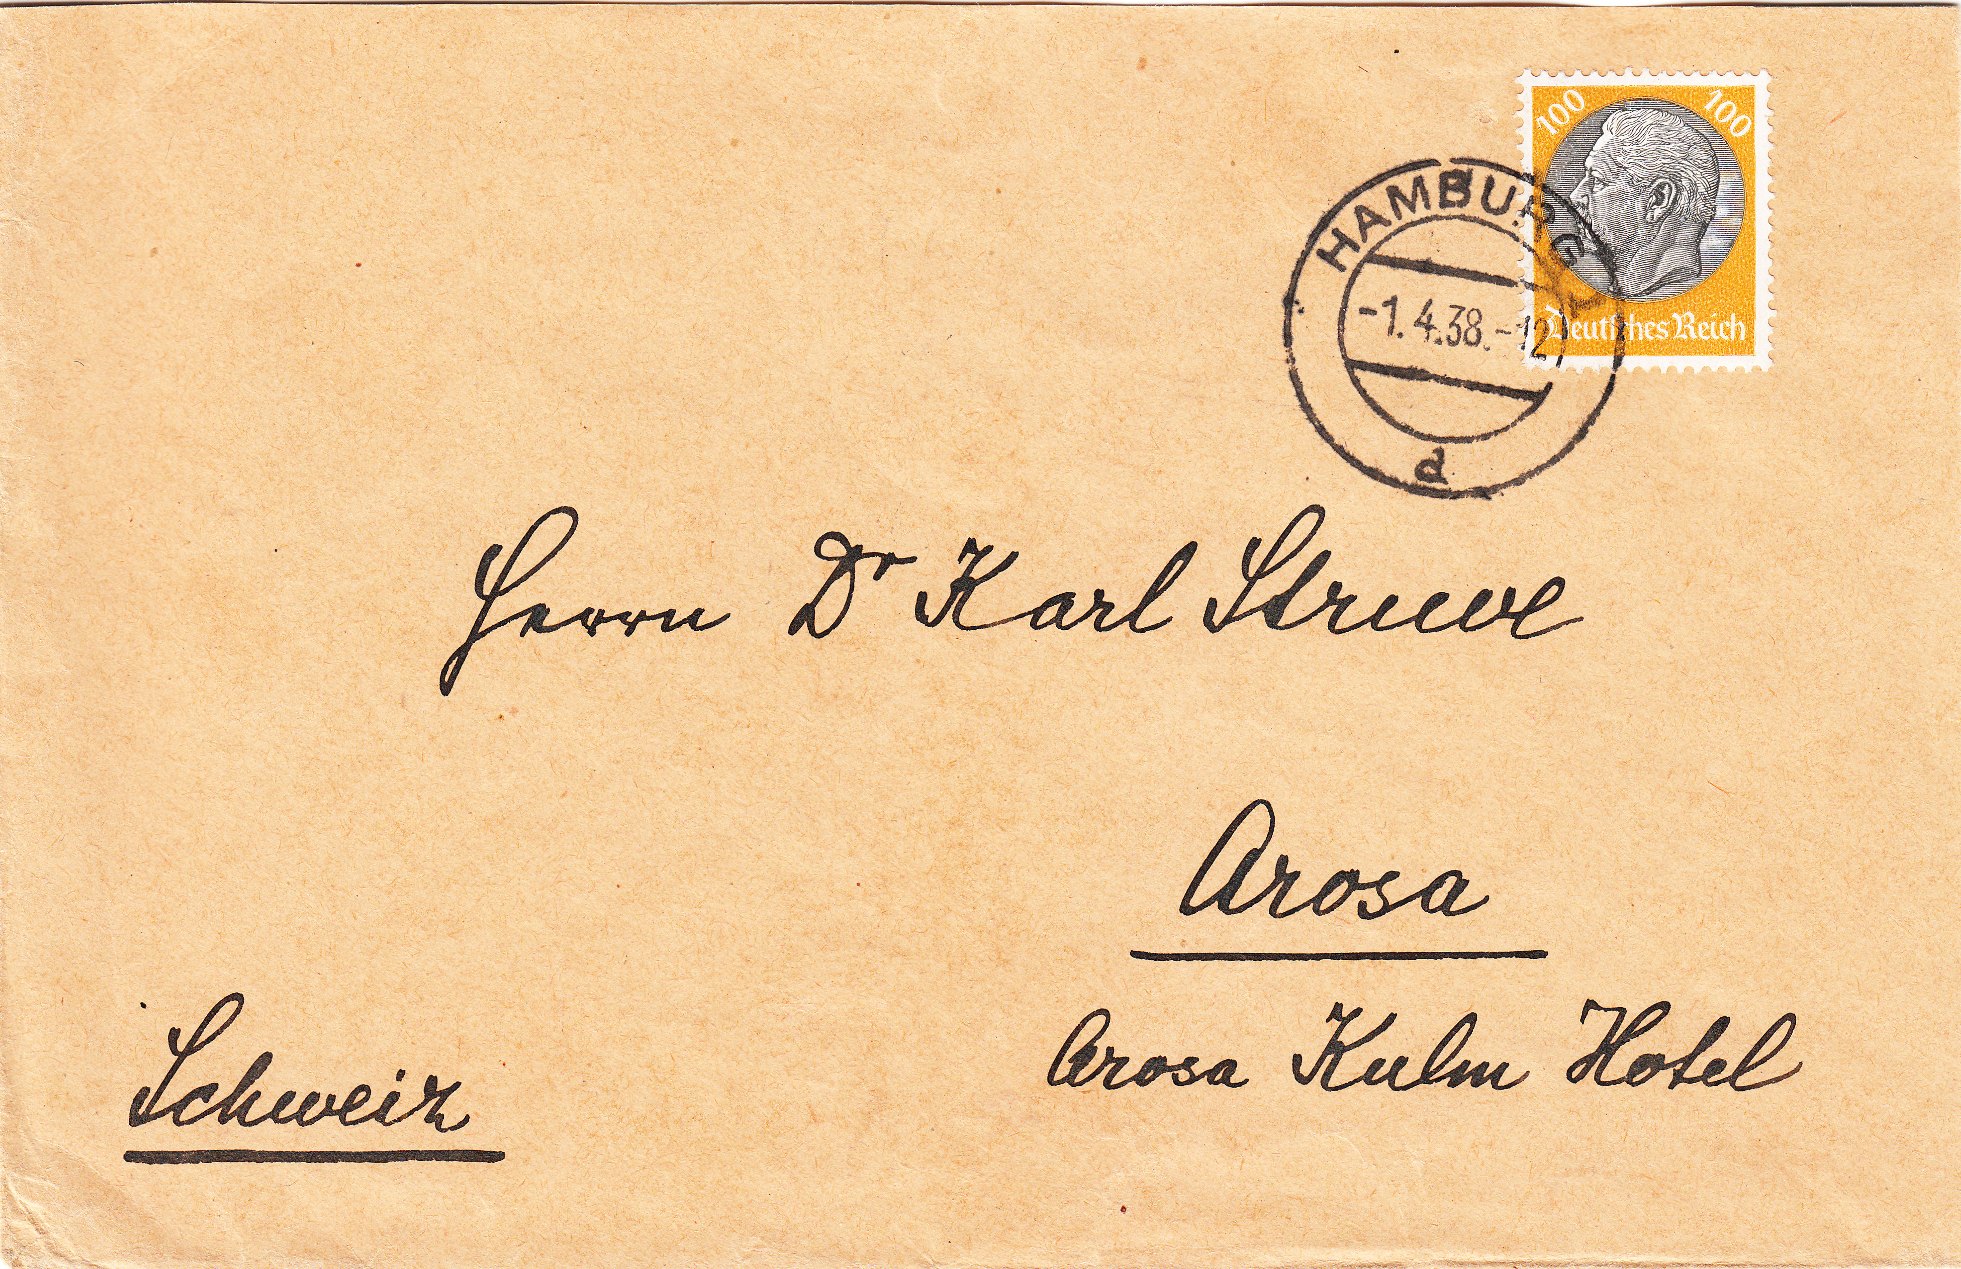 100 100
Deutsches Reich
HAMBURG 1
-1.4.38.-12
d
Herrn Dr Karl Struve
Arosa
Arosa Kulm Hotel
Schweiz